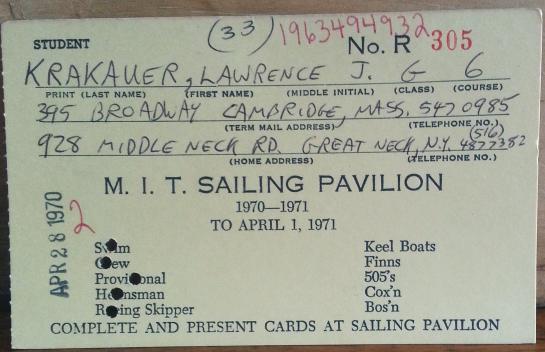 STUDENT (33) 1963494932
No. R 305
KRAKAUER, LAWRENCE J. G 6
PRINT (LAST NAME) (FIRST NAME) (MIDDLE INITIAL) (CLASS) (COURSE)
395 BROADWAY CAMBRIDGE, MASS. 547 0985
(TERM MAIL ADDRESS) (TELEPHONE NO.)
928 MIDDLE NECK RD. GREAT NECK, N.Y. (516) 4877382
(HOME ADDRESS) (TELEPHONE NO.)
M. I. T. SAILING PAVILION
1970—1971
TO APRIL 1, 1971
APR 28 1970
2
Swim
Crew
Provisional
Helmsman
Racing Skipper
Keel Boats
Finns
505's
Cox'n
Bos'n
COMPLETE AND PRESENT CARDS AT SAILING PAVILION